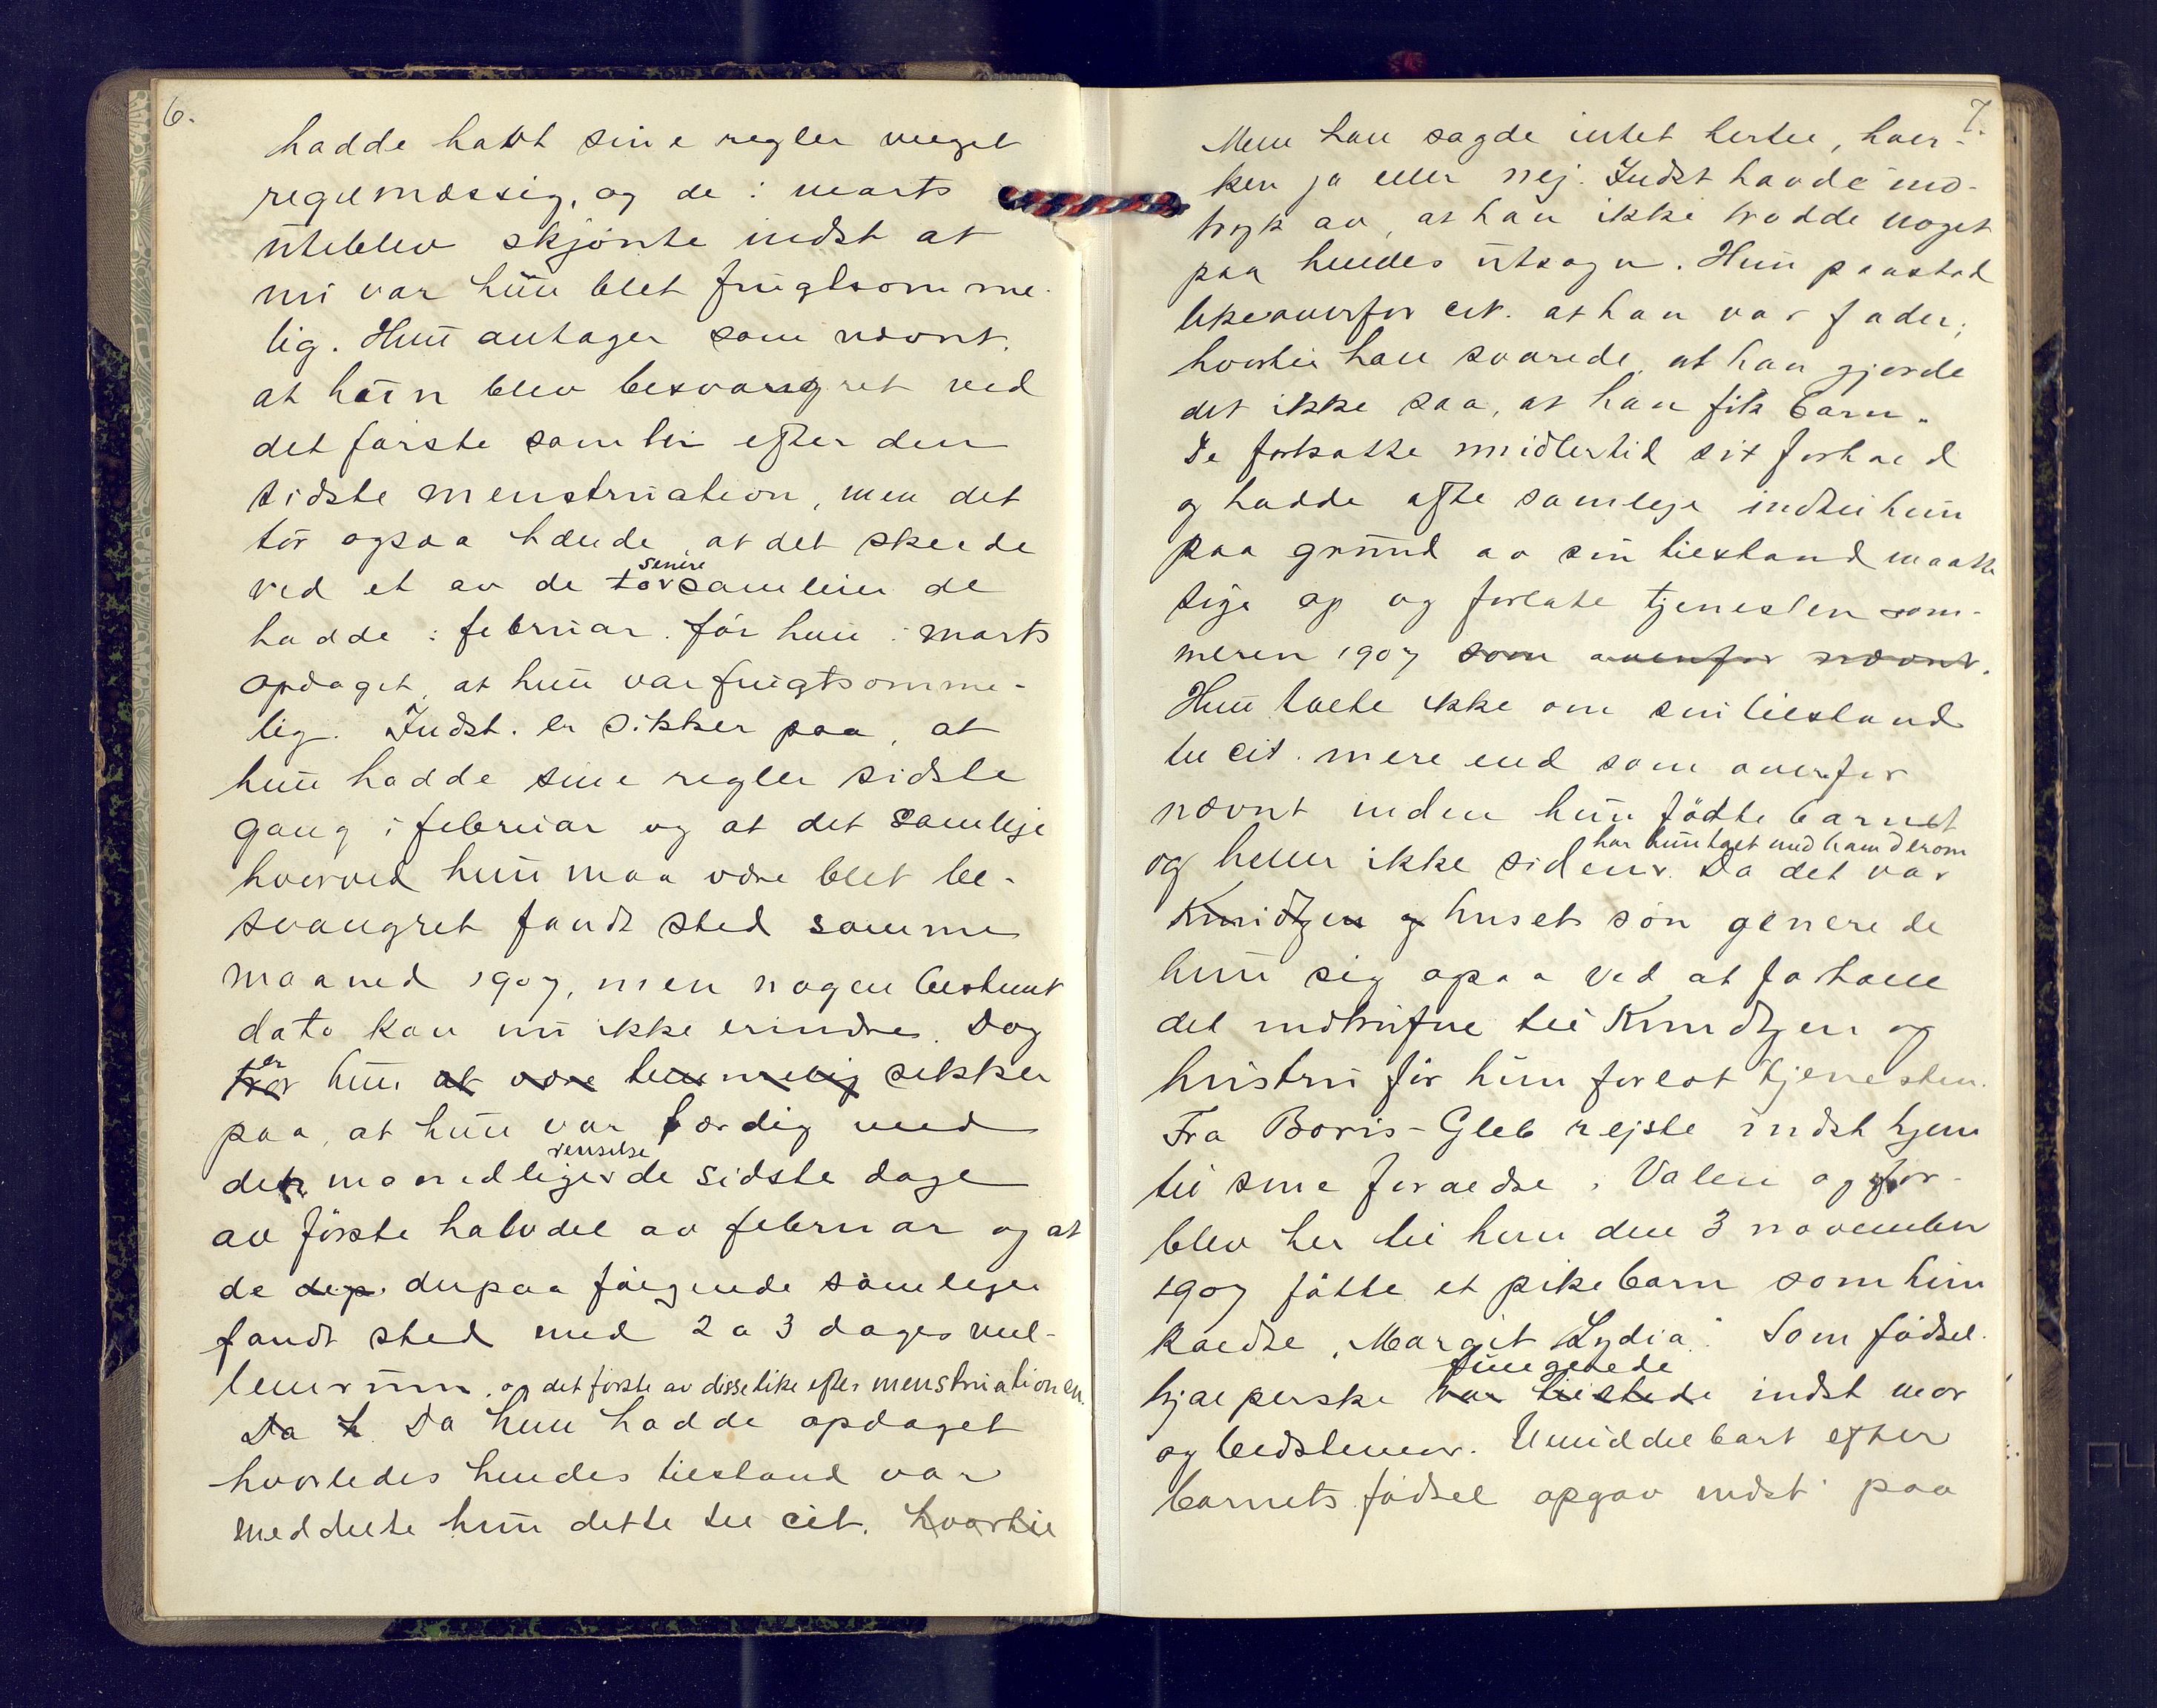 6.
hadde havt sine regler meget
regelmæssig, og de i marts
uteblev skjønte indst at
nu var hun blet frugtsomme-
lig. Hun antager som nævnt.
at hun blev besvangret ved
det første samleie efter den
sidste menstruation, men det
tør ogsaa hænde, at det skeede
senere
ved et av de tør samleier de
hadde i februar før hun i marts
opdaget, at hun var frugtsomme-
lig. Indst. er sikker paa, at
hun hadde sine regler sidste
gang i februar og at det samleje
hvorved hun maa være blet be-
svangret fandt sted samme
maaned 1907, men nogen bestemt
dato kan nu ikke erindres. Dog
er
tror hun at være temmelig sikker
paa, at hun var færdig med
renselse
den maanedlige de sidste dage
av første halvdel av februar og at
de dep. derpaa følgende samlejer
fandt sted med 2 a 3 dages mel-
lemrum, og det første av disse like efter menstruationen.
Da h. Da hun hadde opdaget
hvorledes hendes tilstand var
meddelte hun dette til cit. hvortil
7.
Men han sagde intet hertil, hver-
ken ja eller nej. Indst havde ind-
tryk av, at han ikke trodde noget
paa hendes utsagn. Hun paastod
likeoverfor cit. at han var fader,
hvortil han svarede, at han gjorde
det ikke saa, at han fik barn.
De fortsatte imidlertid sit forhold
og hadde ofte samleje indtil hun
paa grund av sin tilstand maatte
sige op og forlate tjenesten som-
meren 1907 som ovenfor nævnt.
Hun talte ikke om sin tilstand
til cit. mere end som ovenfor
nævnt inden hun fødte barnet
har hun talt med ham derom
og heller ikke siden. Da det var
Knudtzen og huset søn generede
hun sig ogsaa ved at fortælle
det indtrufne til Knudtzen og
hustru før hun forlot tjenesten.
Fra Boris-Gleb rejste indst hjem
til sine forældre i Valen og for-
blev her til hun den 3 november
1907 fødte et pikebarn som hun
kaldte "Margit Lydia". Som fødsel-
fungerede
hjælperske var tilstede indst mor
og bedstemor. Umiddelbart efter
barnets fødsel opgav indst paa